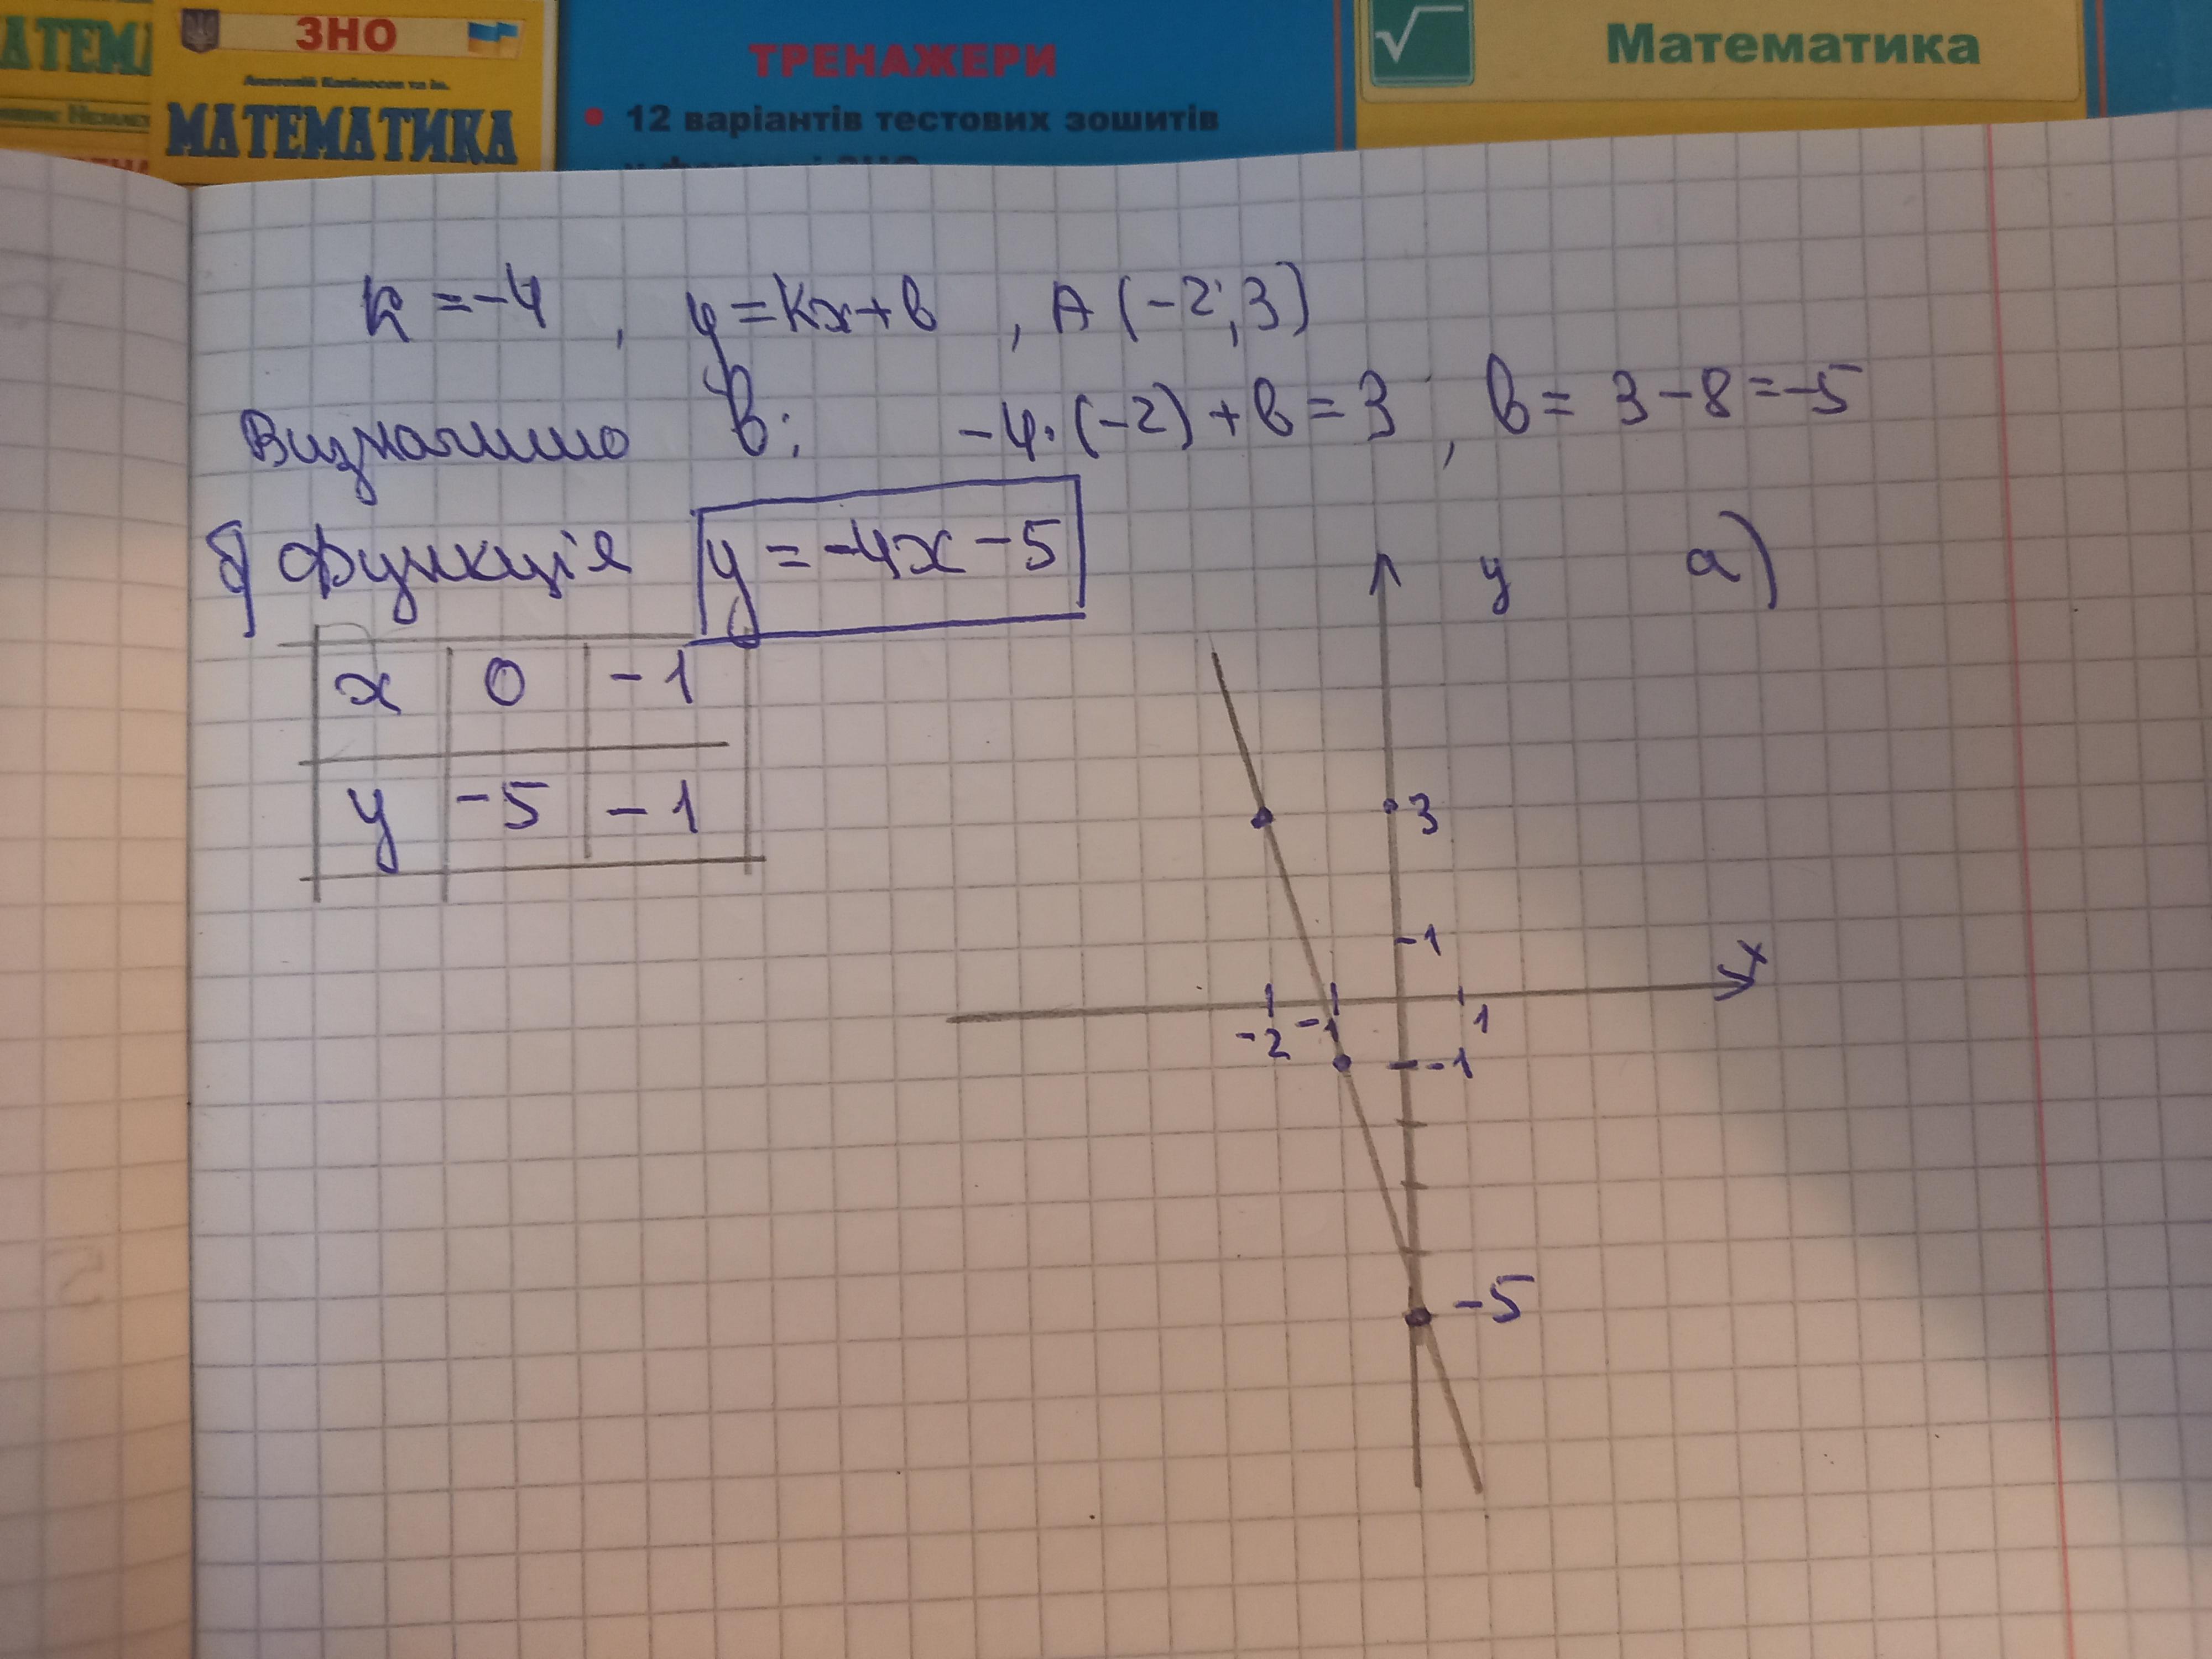 АТЕМА
ЗНО
МАТЕМАТИКА
ТРЕНАЖЕРИ
• 12 варіантів тестових зошитів
Математика
k = -4 , y = kx + b , A (-2; 3)
Визначимо b: -4·(-2) + b = 3 , b = 3 - 8 = -5
б) функція y = -4x - 5
а)
y
x 0 -1
y -5 -1
3
1
x
-2 -1 1
-1
-5